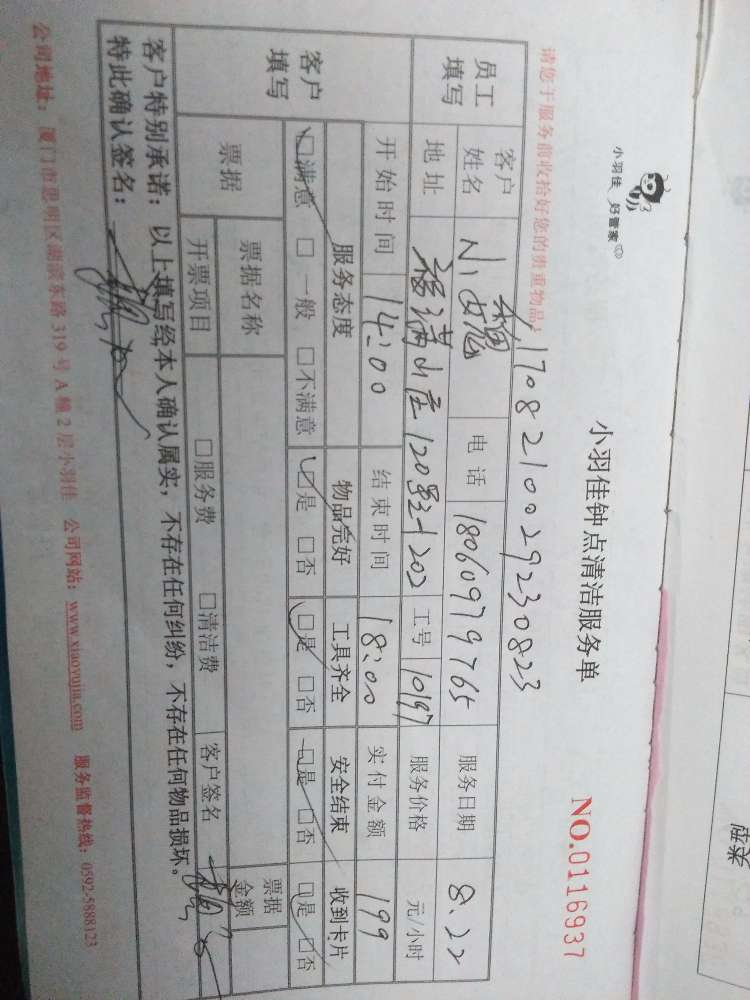 小羽佳 好管家
小羽佳钟点清洁服务单
NO.0116937
请您于服务前收拾好您的贵重物品!
1708210029230823
员工填写 客户姓名 小魏 电话 18060979765 服务日期 8.22
地址 福满山庄120号 202 工号 10197 服务价格 元/小时
开始时间 14:00 结束时间 18:00 实付金额 199
客户填写 服务态度 物品完好 工具齐全 安全结束 收到卡片
☑满意 □一般 □不满意 ☑是 □否 ☑是 □否 ☑是 □否 ☑是 □否
票据 票据名称 票据金额
开票项目 □服务费 □清洁费 客户签名
客户特别承诺:以上填写经本人确认属实,不存在任何纠纷,不存在任何物品损坏。
特此确认签名:
公司地址:厦门市思明区湖滨东路319号A幢2层小羽佳 公司网站:www.xiaoyujia.com 服务监督热线:0592-5888123